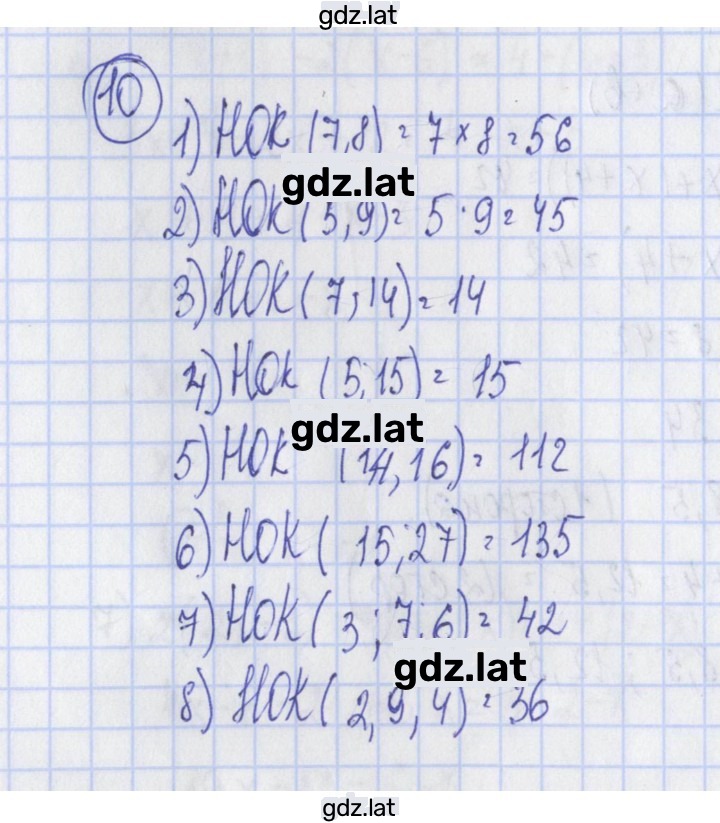 gdz.lat
10
1) НОК (7,8) = 7 × 8 = 56
gdz.lat
2) НОК (5,9) = 5 · 9 = 45
3) НОК (7;14) = 14
4) НОК (5;15) = 15
gdz.lat
5) НОК (14,16) = 112
6) НОК (15;27) = 135
7) НОК (3;7;6) = 42
gdz.lat
8) НОК (2,9,4) = 36
gdz.lat